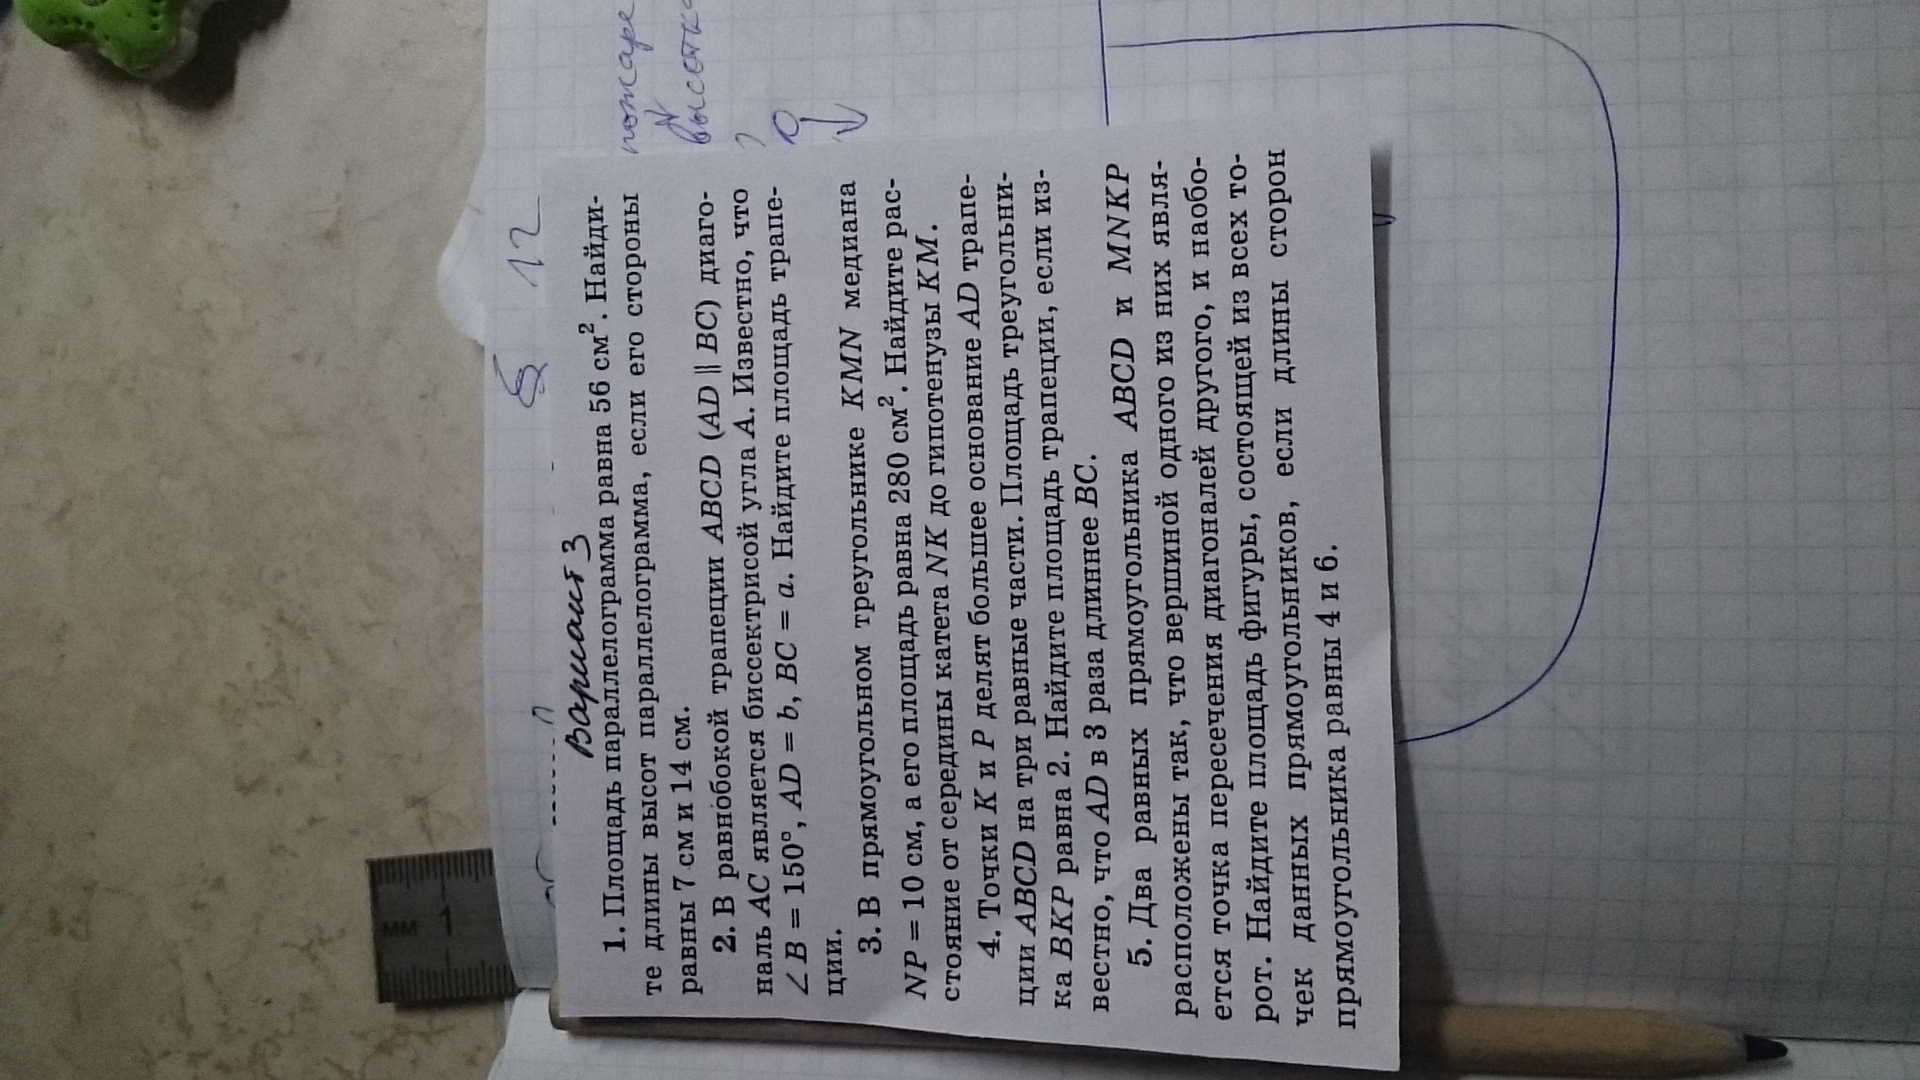 пожаре
высотка
§ 12
Вариант 3
1. Площадь параллелограмма равна 56 см². Найди-
те длины высот параллелограмма, если его стороны
равны 7 см и 14 см.
2. В равнобокой трапеции ABCD (AD || BC) диаго-
наль AC является биссектрисой угла A. Известно, что
∠B = 150°, AD = b, BC = a. Найдите площадь трапе-
ции.
3. В прямоугольном треугольнике KMN медиана
NP = 10 см, а его площадь равна 280 см². Найдите рас-
стояние от середины катета NK до гипотенузы KM.
4. Точки K и P делят большее основание AD трапе-
ции ABCD на три равные части. Площадь треугольни-
ка BKP равна 2. Найдите площадь трапеции, если из-
вестно, что AD в 3 раза длиннее BC.
5. Два равных прямоугольника ABCD и MNKP
расположены так, что вершиной одного из них явля-
ется точка пересечения диагоналей другого, и наобо-
рот. Найдите площадь фигуры, состоящей из всех то-
чек данных прямоугольников, если длины сторон
прямоугольника равны 4 и 6.
мм 1